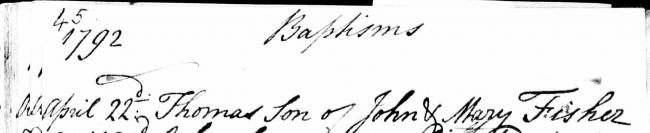 45
1792 Baptisms
April 22d. Thomas Son of John & Mary Fisher